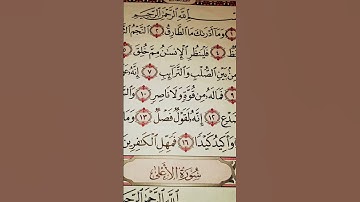 ٱللَّهِ ٱلرَّحْمَٰنِ ٱلرَّحِيمِ
وَمَآ أَدْرَىٰكَ مَا ٱلطَّارِقُ ٢ ٱلنَّجْمُ
٤ فَلْيَنظُرِ ٱلْإِنسَٰنُ مِمَّ خُلِقَ
مِنۢ بَيْنِ ٱلصُّلْبِ وَٱلتَّرَآئِبِ ٧ إِنَّهُۥ
٩ فَمَا لَهُۥ مِن قُوَّةٍ وَلَا نَاصِرٍ ١٠
١٢ إِنَّهُۥ لَقَوْلٌ فَصْلٌ ١٣ وَمَا
وَأَكِيدُ كَيْدًا ١٦ فَمَهِّلِ ٱلْكَٰفِرِينَ
سُورَةُ ٱلْأَعْلَىٰ
ٱللَّهِ ٱلرَّحْمَٰنِ